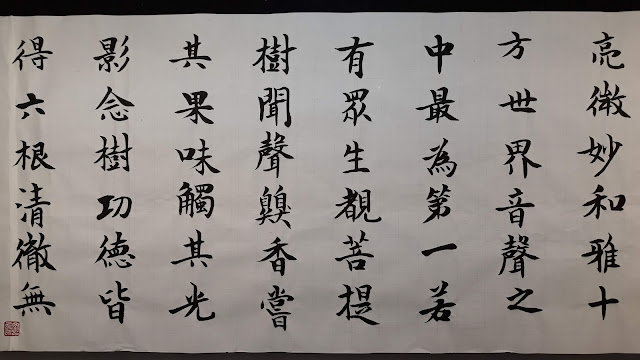 亮微妙和雅十
方世界音聲之
中最為第一若
有眾生覩菩提
樹聞聲齅香嘗
其果味觸其光
影念樹功德皆
得六根清徹無